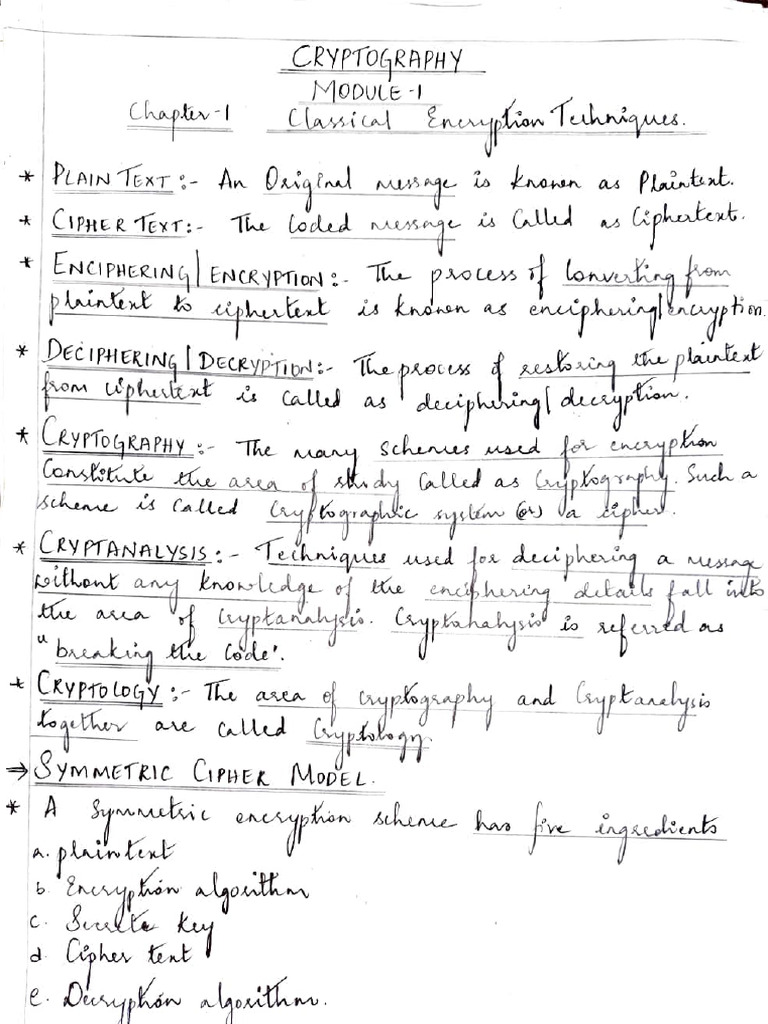 CRYPTOGRAPHY
MODULE-1
Chapter-1 Classical Encryption Techniques.
* PLAIN TEXT :- An Original message is known as Plaintext.
* CIPHER TEXT:- The Coded message is Called as Ciphertext.
* ENCIPHERING/ENCRYPTION:- The process of Converting from
plaintext to ciphertext is known as enciphering/encryption.
* DECIPHERING/DECRYPTION:- The process of restoring the plaintext
from ciphertext is called as deciphering/decryption.
* CRYPTOGRAPHY :- The many schemes used for encryption
Constitute the area of study Called as Cryptography. Such a
scheme is Called Cryptographic system (or) a cipher.
* CRYPTANALYSIS :- Techniques used for deciphering a message
without any knowledge of the enciphering details fall into
the area of Cryptanalysis. Cryptanalysis is referred as
"breaking the Code'.
* CRYPTOLOGY :- The area of cryptography and Cryptanalysis
together are called Cryptology.
⇒ SYMMETRIC CIPHER MODEL.
* A Symmetric encryption scheme has five ingredients
a. plaintext
b. Encryption algorithm
c. Secrete Key
d. Cipher text
e. Decryption algorithm.